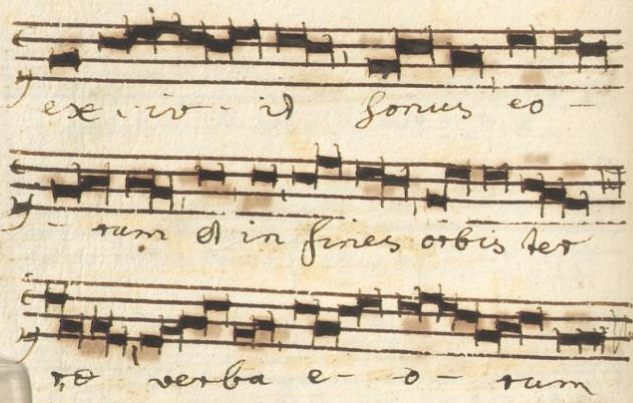 ex - iv - it sonus eo -
- rum et in fines orbis ter
re verba e - o - rum